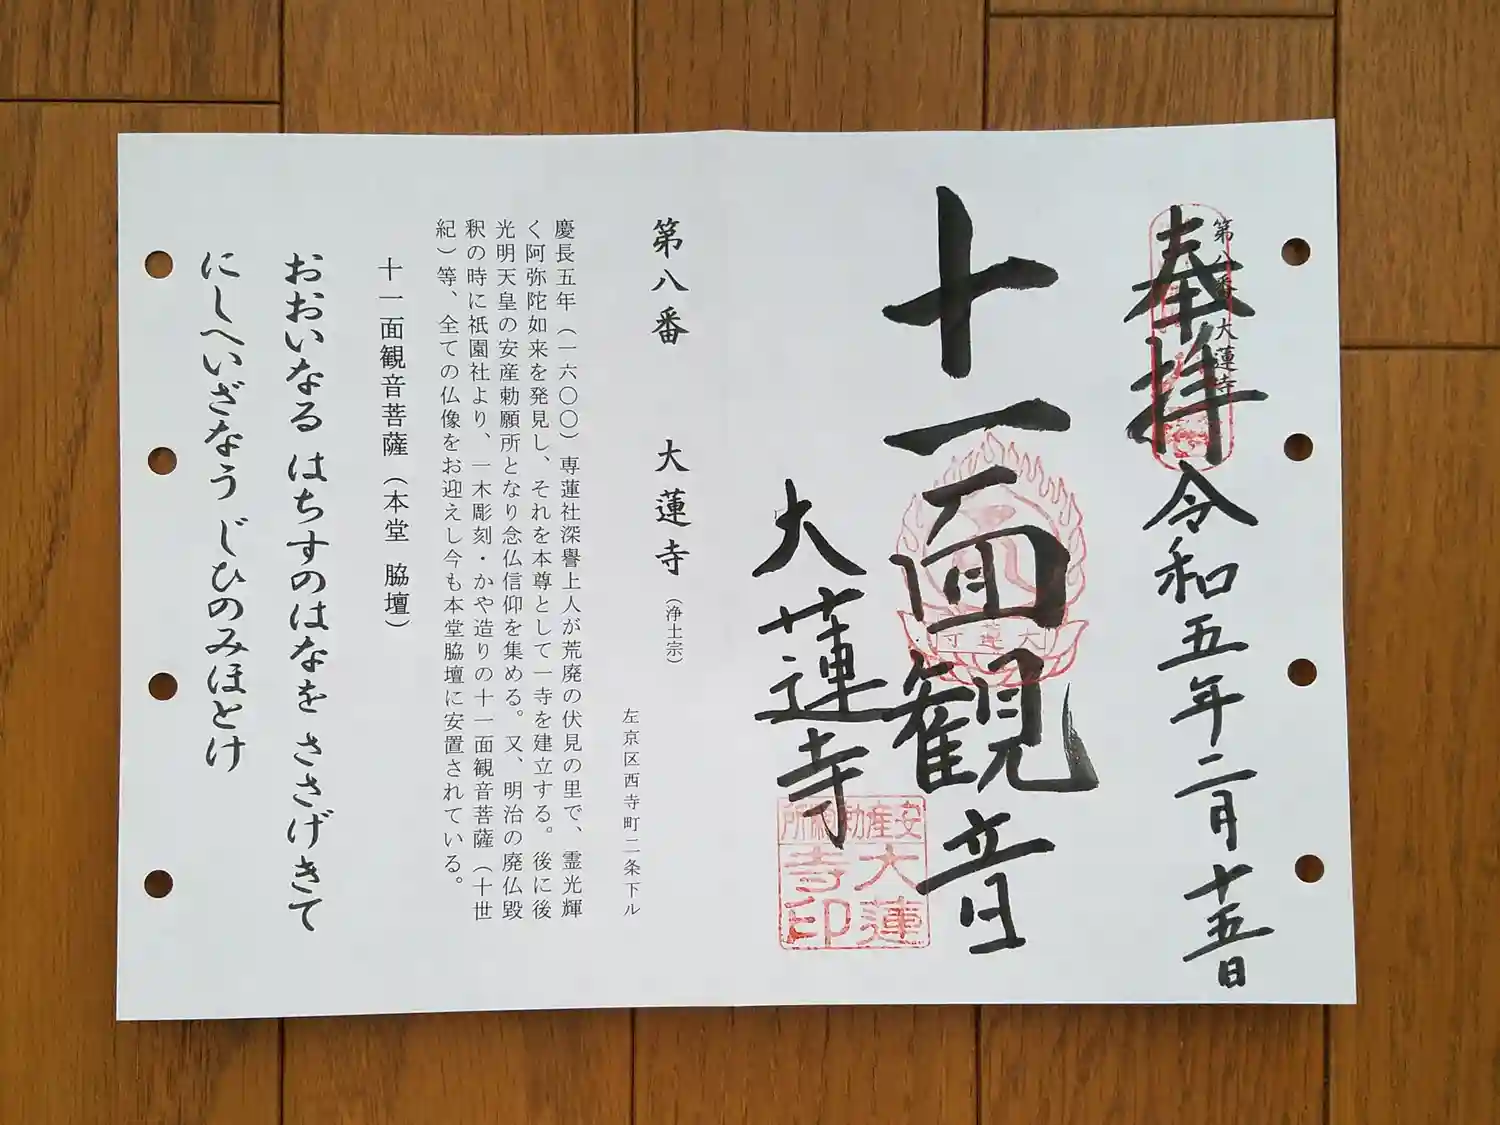 第八番 大蓮寺
奉拝
令和五年二月十五日
十一面観音
大蓮寺
大蓮寺
安産勅願所
大蓮
寺印
第八番 大蓮寺(浄土宗)
左京区西寺町二条下ル
慶長五年(一六〇〇)専蓮社深譽上人が荒廃の伏見の里で、霊光輝
く阿弥陀如来を発見し、それを本尊として一寺を建立する。後に後
光明天皇の安産勅願所となり念仏信仰を集める。又、明治の廃仏毀
釈の時に祇園社より、一木彫刻・かや造りの十一面観音菩薩(十世
紀)等、全ての仏像をお迎えし今も本堂脇壇に安置されている。
十一面観音菩薩(本堂 脇壇)
おおいなる はちすのはなを ささげきて
にしへいざなう じひのみほとけ